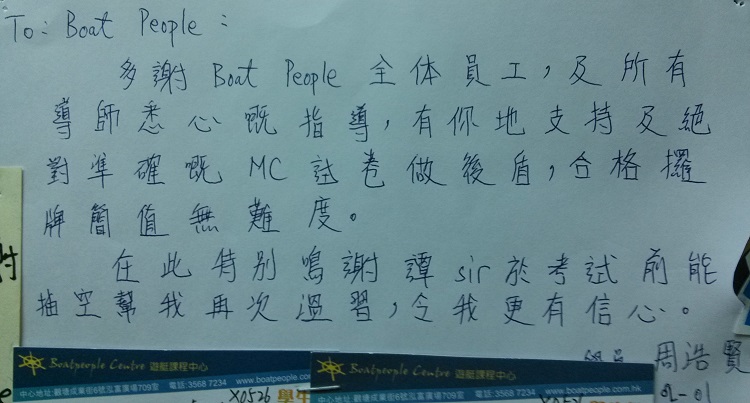 To: Boat People :
多謝 Boat People 全体員工，及所有
導師悉心嘅指導，有你地支持及絕
對準確嘅 MC 試卷做後盾，合格攞
牌簡值無難度。
在此特別鳴謝譚 sir 於考試前能
抽空幫我再次溫習，令我更有信心。
周浩賢
Boatpeople Centre 遊艇課程中心
中心地址:觀塘成業街6號泓富廣場709室 電話:3568 7234 www.boatpeople.co
X0526 學生
Boatpeople Centre 遊艇課程中心
中心地址:觀塘成業街6號泓富廣場709室 電話:3568 7234 www.boatpeople.com.hk